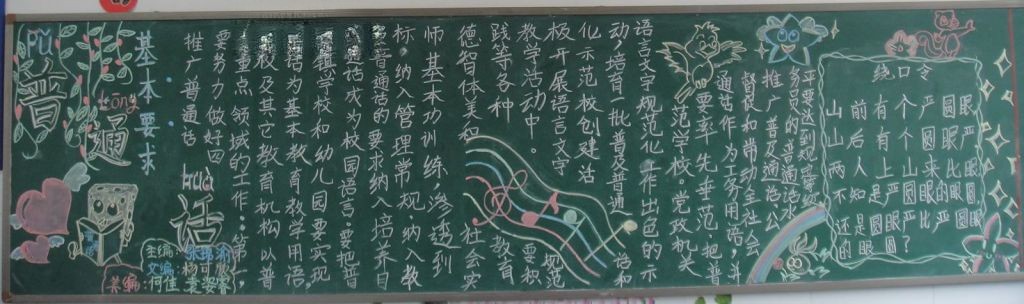 Pǔ
普
tōng
通
huà
话
基本要求
推广普通话
要努力做好四
重点领域的工作:第一,
学校及其它教育机构以普
通话为基本教育教学用语,
学校和幼儿园要实现
通话成为校园语言,要把普
普通话的要求纳入培养目
标,纳入管理常规,纳入教
师基本功训练,渗透到
德智体美和社会实
践等各种教育
教学活动中。要积
极开展语言文字规范
化示范校创建活
动,培育一批普及普通话和
语言文字规范化工作出色的示
范学校。党政机关
要率先垂范,把普
通话作为工作用语,并
督促和带动全社会
推广普及普通话。公
务员的普通话
平要达到规定
绕口令
山前有个严圆眼
山后有个圆眼严
两人上山来比眼
不知是严圆眼的眼圆
还是圆眼严比严圆眼
的眼圆?
主编:
文编:杨可
美编:何佳